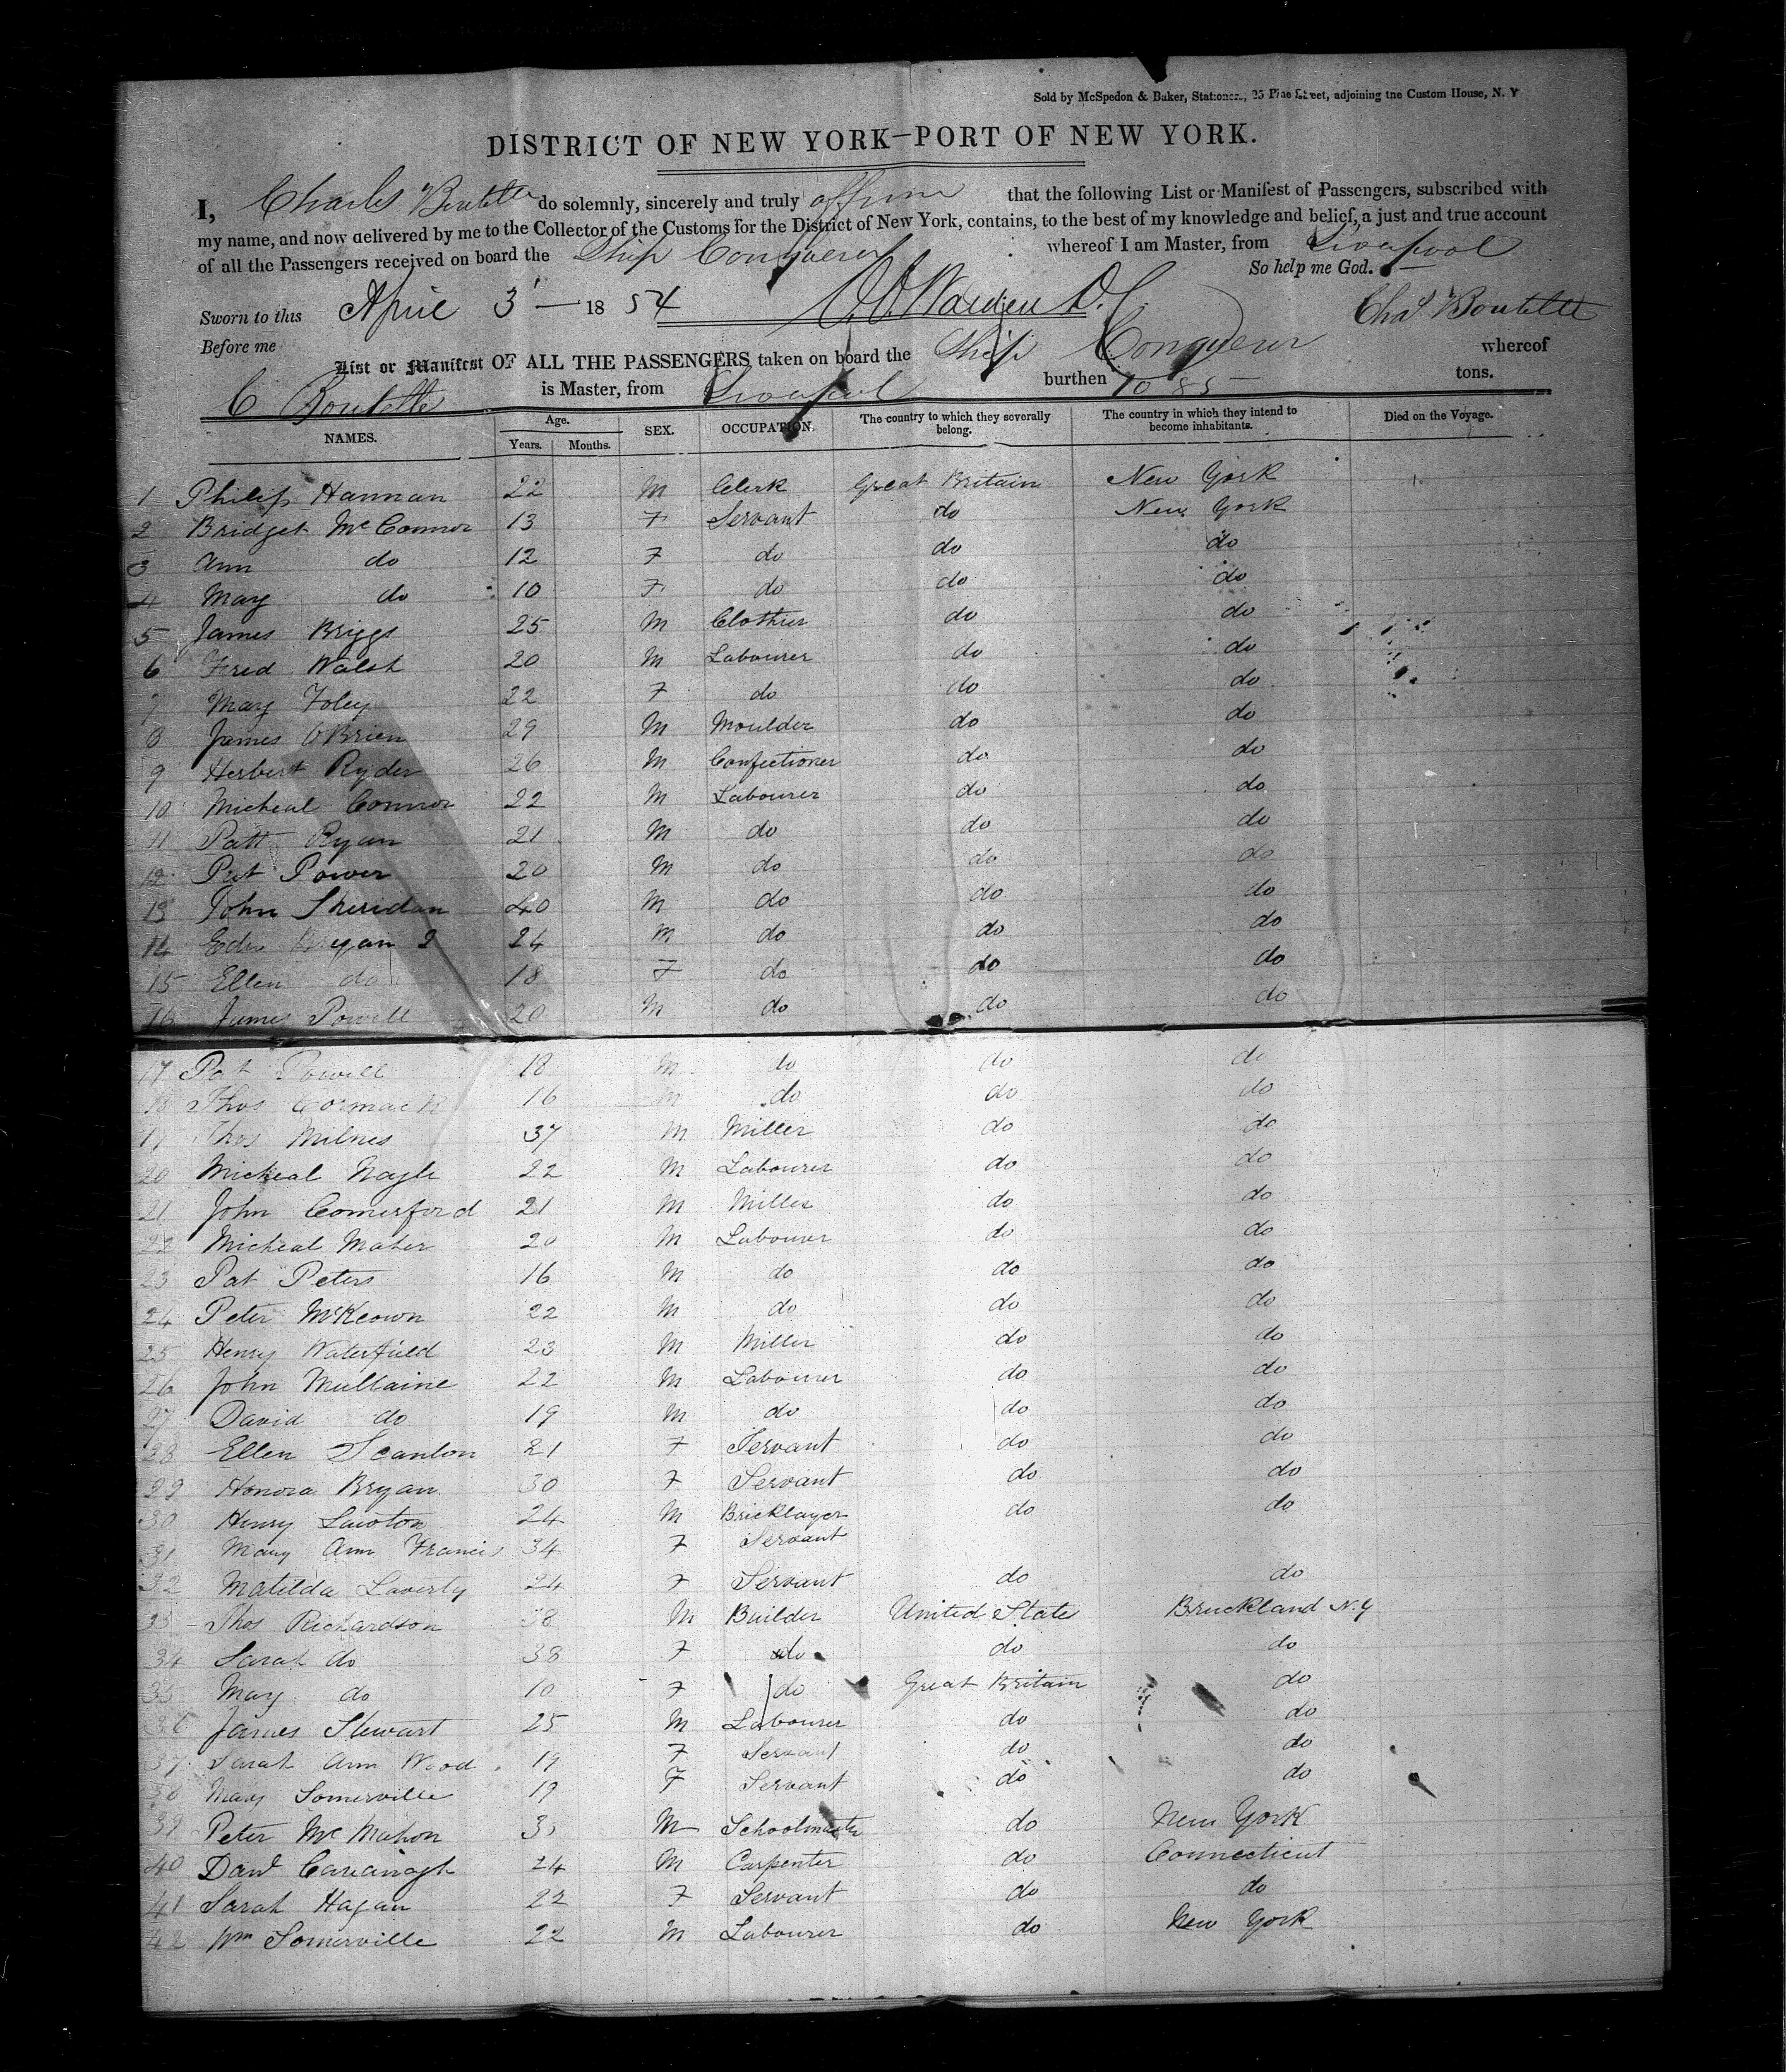 Sold by McSpedon & Baker, Stationers, 25 Pine Street, adjoining the Custom House, N. Y
DISTRICT OF NEW YORK—PORT OF NEW YORK.
I, Charles Boutelle do solemnly, sincerely and truly affirm that the following List or Manifest of Passengers, subscribed with
my name, and now delivered by me to the Collector of the Customs for the District of New York, contains, to the best of my knowledge and belief, a just and true account
of all the Passengers received on board the Ship Conqueror whereof I am Master, from Liverpool
So help me God.
Sworn to this April 3 — 1854 Chas Boutelle
Before me
List or Manifest OF ALL THE PASSENGERS taken on board the Ship Conqueror whereof
C Boutelle is Master, from Liverpool burthen 1085 tons.
NAMES. Age. Years. Months. SEX. OCCUPATION. The country to which they severally belong. The country in which they intend to become inhabitants. Died on the Voyage.
1 Philip Hannan 22 M Clerk Great Britain New York
2 Bridget McConnor 13 F Servant do New York
3 Ann do 12 F do do do
4 Mary do 10 F do do do
5 James Briggs 25 M Clothier do do
6 Fred Walsh 20 M Labourer do do
7 Mary Foley 22 F do do do
8 James O'Brien 29 M Moulder do do
9 Herbert Ryder 26 M Confectioner do do
10 Micheal Connor 22 M Labourer do do
11 Patt Ryan 21 M do do do
12 Pat Power 20 M do do do
13 John Sheridan 40 M do do do
14 Edw Bryan 24 M do do do
15 Ellen do 18 F do do do
16 James Powell 20 M do do do
17 Pat Powell 18 M do do do
18 Thos Cormack 16 M do do do
19 Thos Milnes 37 M Miller do do
20 Micheal Nagle 22 M Labourer do do
21 John Comerford 21 M Miller do do
22 Micheal Maher 20 M Labourer do do
23 Pat Peters 16 M do do do
24 Peter McKeown 22 M do do do
25 Henry Waterfield 23 M Miller do do
26 John Mullaine 22 M Labourer do do
27 David do 19 M do do do
28 Ellen Scanlon 21 F Servant do do
29 Honora Bryan 30 F Servant do do
30 Henry Lawton 24 M Bricklayer do do
31 Mary Ann Francis 34 F Servant
32 Matilda Laverty 24 F Servant do do
33 Thos Richardson 38 M Builder United State Bruckland N.Y
34 Sarah do 38 F do do do
35 Mary do 10 F do Great Britain do
36 James Stewart 25 M Labourer do do
37 Sarah Ann Wood 19 F Servant do do
38 Mary Somerville 19 F Servant do do
39 Peter McMahon M Schoolmaster do New York
40 Danl Cavanagh 24 M Carpenter do Connecticut
41 Sarah Hagan 22 F Servant do do
42 Wm Somerville 22 M Labourer do New York